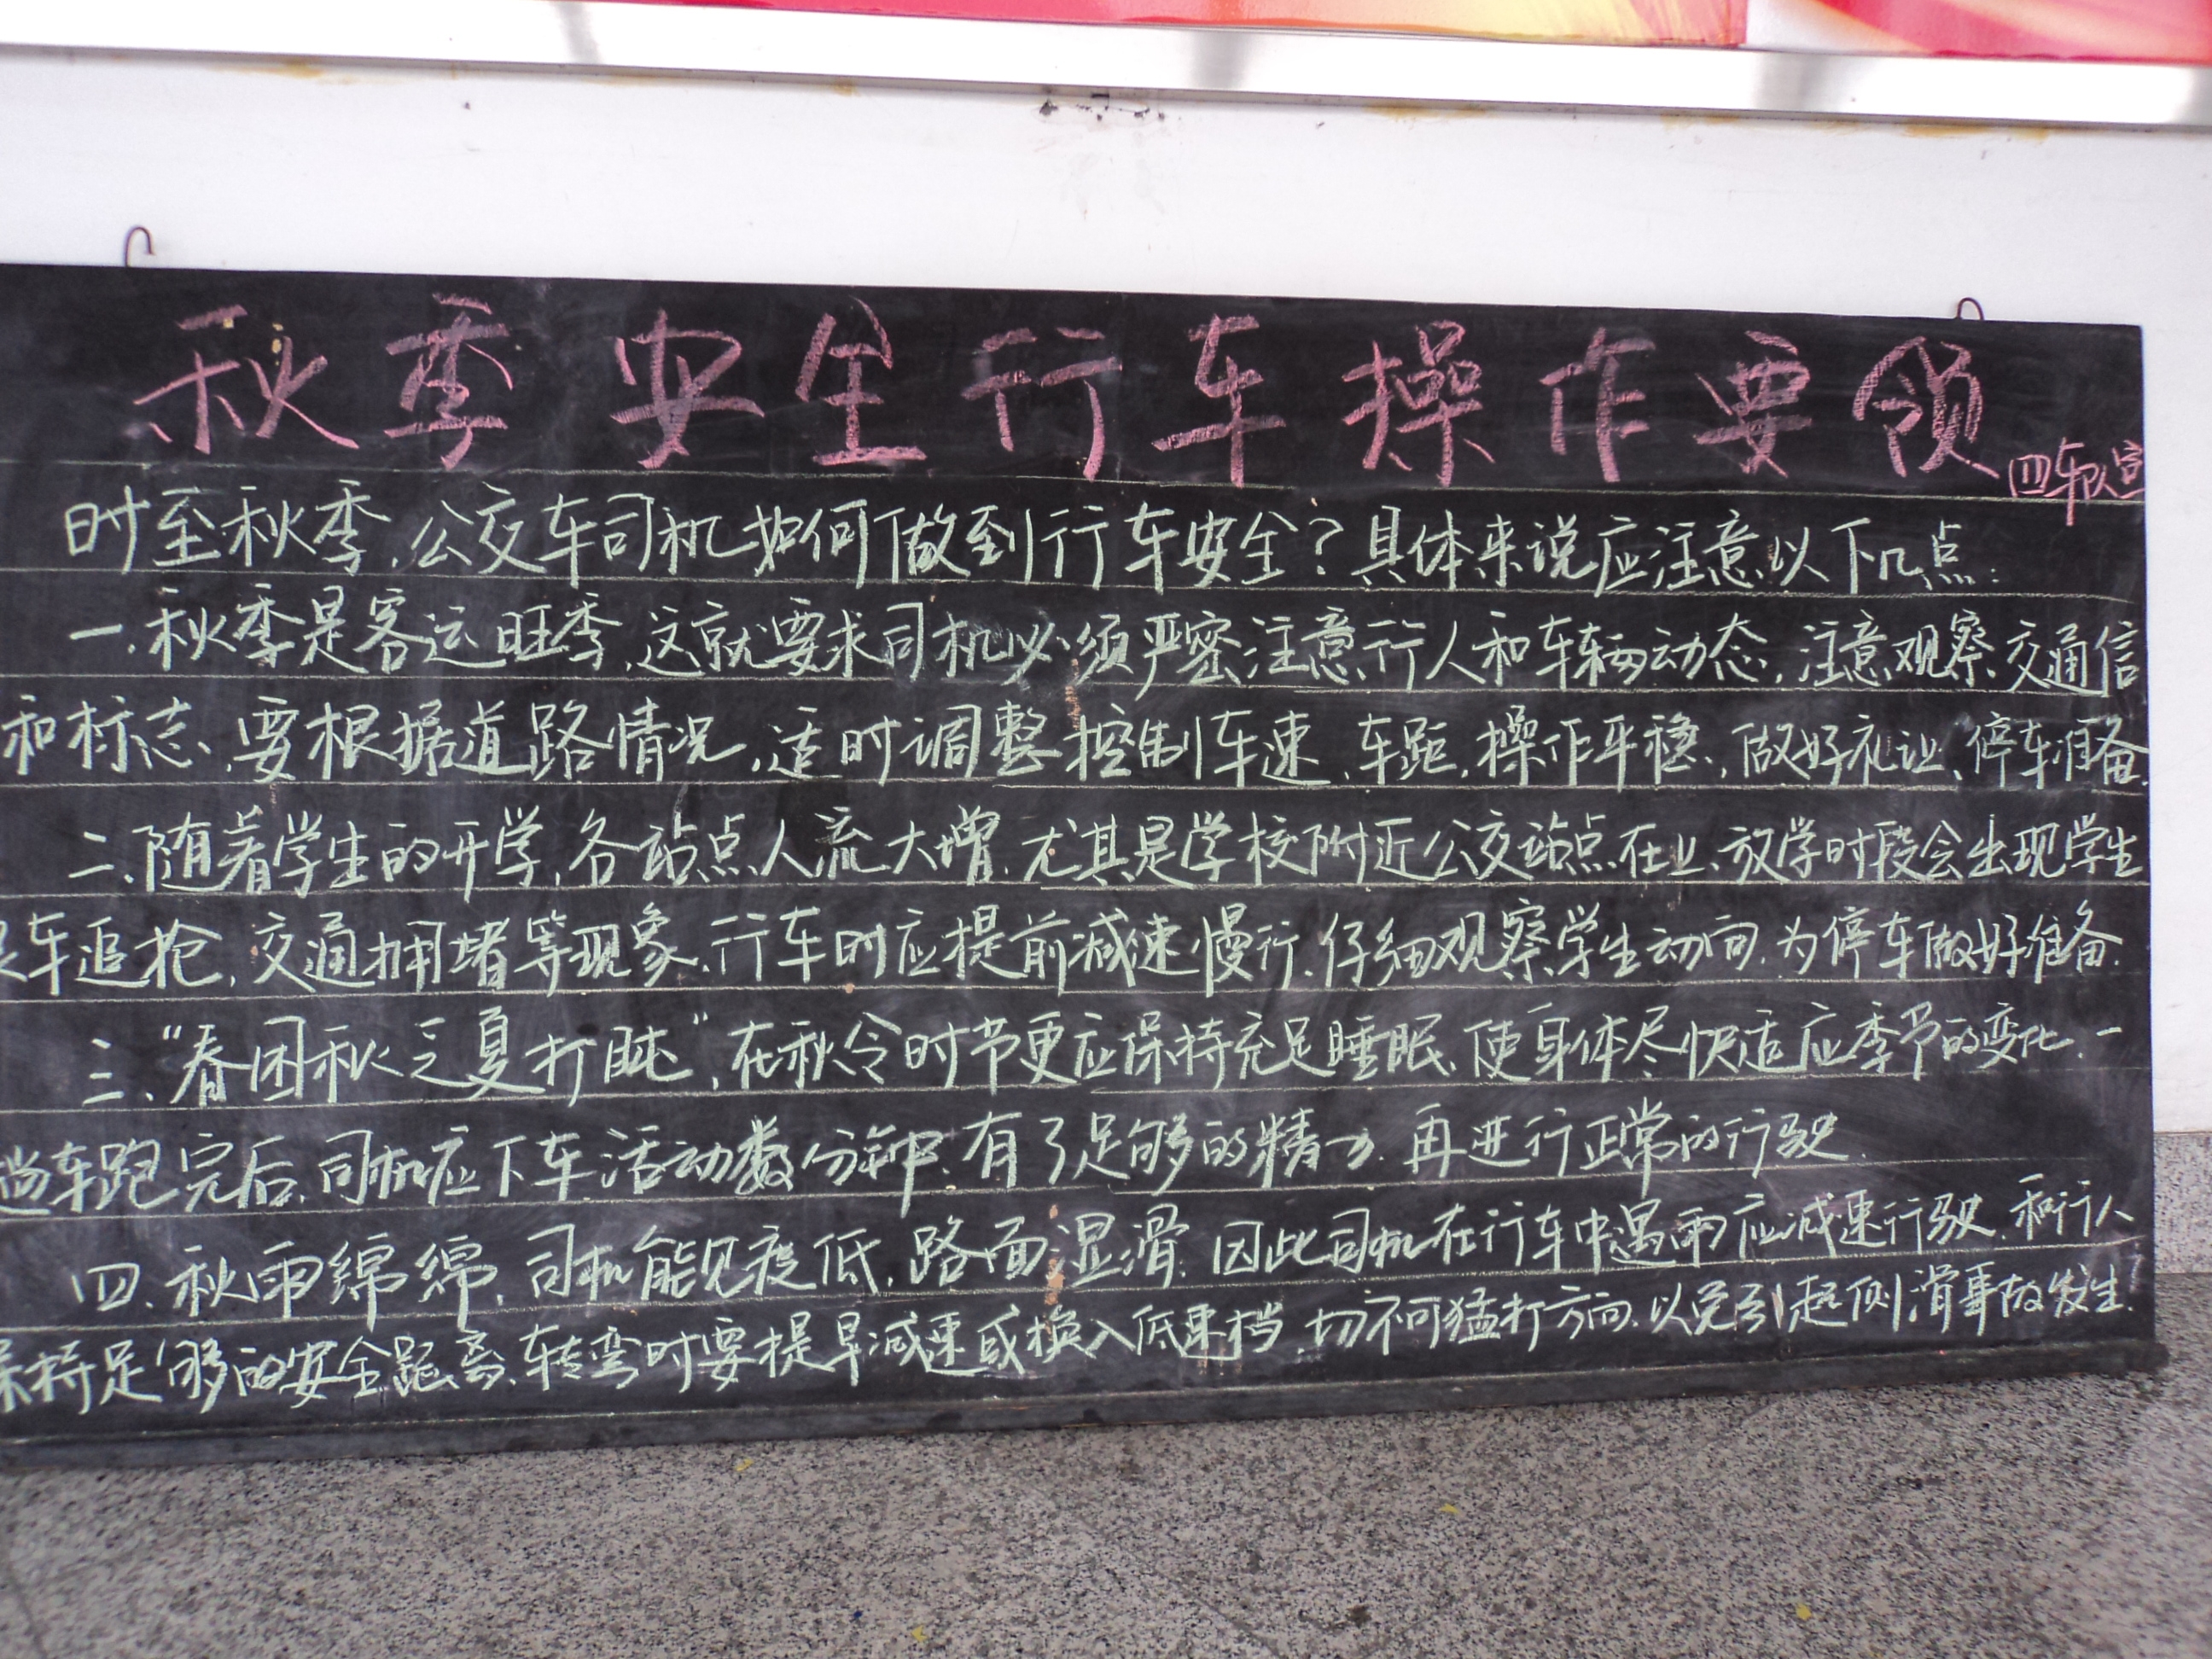 秋季安全行车操作要领
四车队宣
时至秋季,公交车司机如何做到行车安全?具体来说应注意以下几点:
一.秋季是客运旺季,这就要求司机必须严密注意行人和车辆动态,注意观察交通信
和标志,要根据道路情况,适时调整控制车速、车距,操作平稳,做好礼让、停车准备.
二.随着学生的开学,各站点人流大增,尤其是学校附近公交站点在上、放学时段会出现学生
车追抢,交通拥堵等现象,行车时应提前减速慢行,仔细观察学生动向,为停车做好准备.
三、“春困秋乏夏打盹”,在秋令时节更应保持充足睡眠,使身体尽快适应季节的变化,一
趟车跑完后,司机应下车活动数分钟,有了足够的精力,再进行正常的行驶.
四、秋雨绵绵,司机能见度低,路面湿滑,因此司机在行车中遇雨应减速行驶,和行人
保持足够的安全距离,转弯时要提早减速或换入低速档,切不可猛打方向,以免引起侧滑事故发生.